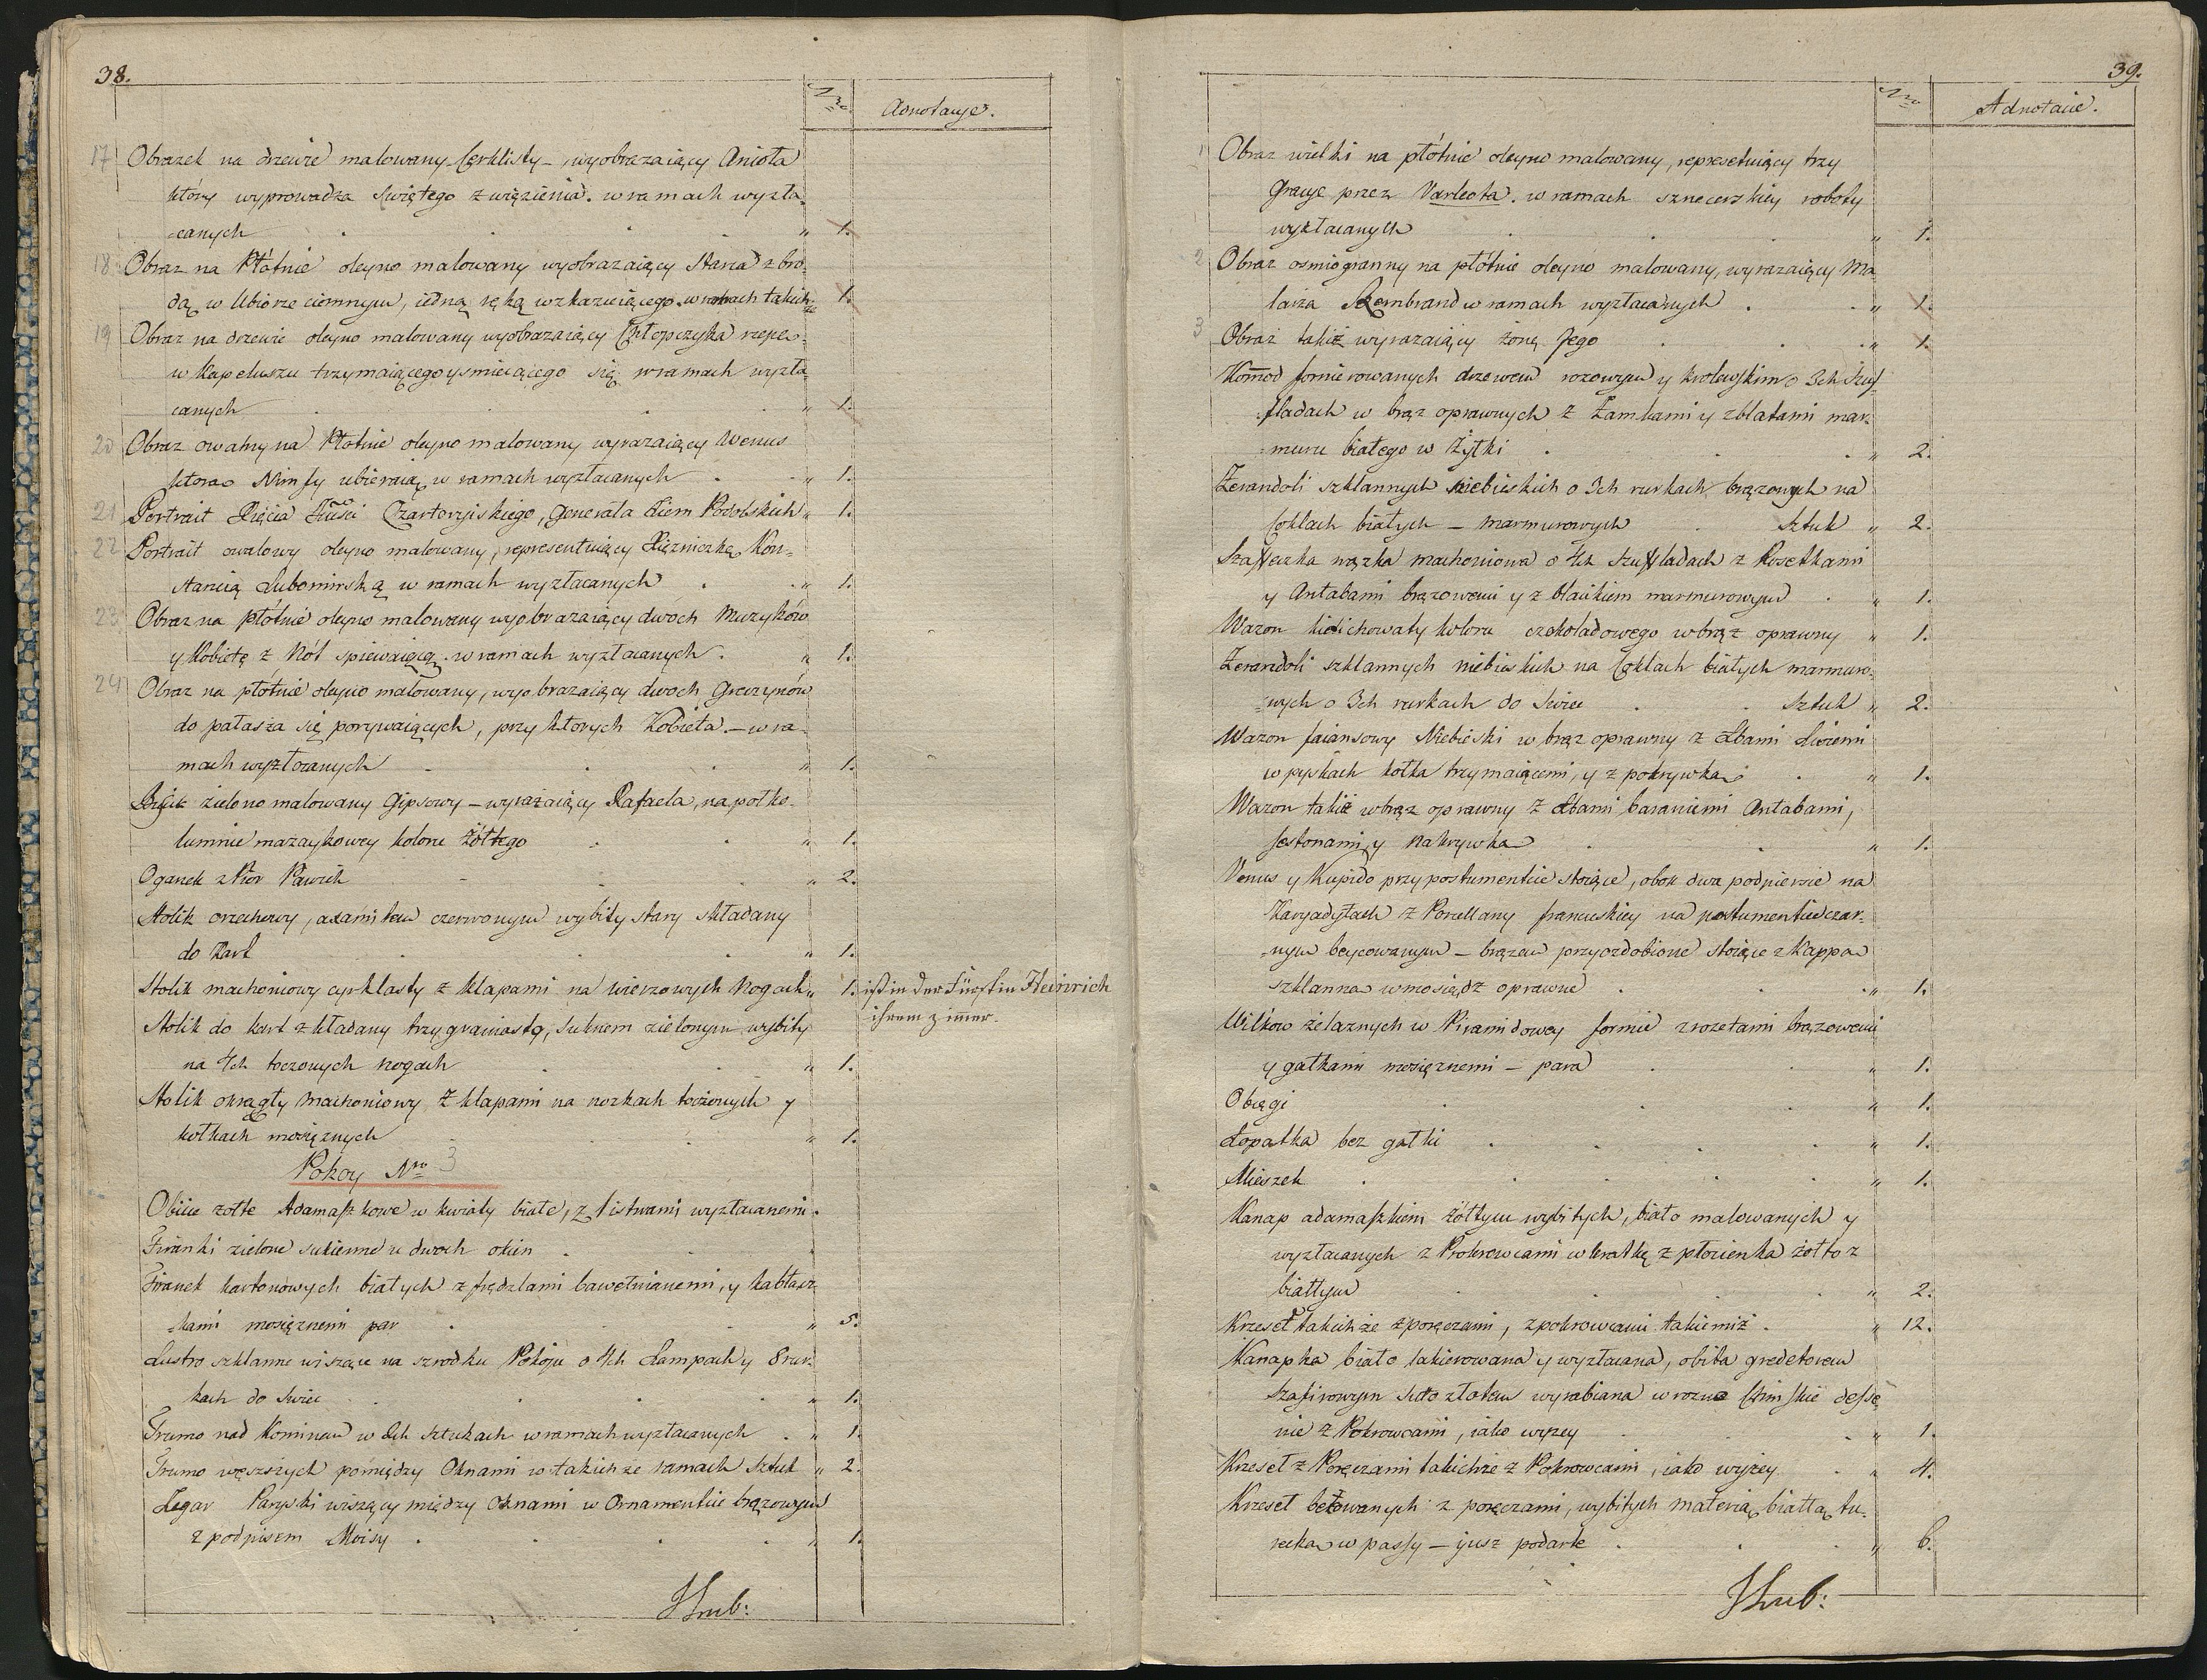 38.
Nro Adnotacye.
17 Obrazek na drzewie malowany Cyrklisty – wyobrazaiący Anioła
który wyprowadza świętego z więzienia. w ramach wyzła=
=canych " 1.
18 Obraz na Płótnie oleyno malowany wyobrazaiący Starca z bro=
dą w Ubiorze ciemnym, iedną ręką wzkazuiącego w ramach takich= " 1.
19 Obraz na drzewie oleyno malowany wyobrazaiący Chłopczyka
w kapeluszu trzymaiącego y smieiącego się w ramach wyzła=
canych " 1.
20 Obraz owalny na Płotnie oleyno malowany wyrazaiący Wenus
ktorą Nimfy ubieraią w ramach wyzłacanych " 1.
21 Portrait Xięcia Czartoryiskiego, Generała Ziem Podolskich " 1.
22 Portrait owalowy oleyno malowany, representuiący Xięzniczkę Kon=
stancią Lubomirską w ramach wyzłacanych " 1.
23 Obraz na płótnie oleyno malowany wyobrazaiący dwoch Muzyków
y Kobietę z Nót spiewaiącą w ramach wyzłacanych " 1.
24 Obraz na płótnie oleyno malowany, wyobrazaiący dwoch Graczynów
do pałasza się porywaiących, przy ktorych Kobieta. – w ra=
mach wyzłoconych " 1.
zielono malowany Gipsowy – wyrazaiący Rafaela, na pół ko=
lumnie mazaykowey koloru żółtego " 1.
Oganek z Piór Pawich " 2.
Stolik orzechowy, axamitem czerwonym wybity stary składany
do Kart " 1.
Stolik machoniowy cyrklasty z klapami na wierzowych Nogach " 1. ist in der Fürstin Heinrich
ihrem zimer.
Stolik do kart składany trzygraniasty, suknem zielonym wybity
na 4ch toczonych nogach " 1.
Stolik okrągły machoniowy z klapami na nozkach toczonych y
kółkach mosięznych " 1.
Pokoy Nro 3
Obicie zołte Adamaszkowe w kwiaty białe, z listwami wyzłacanemi.
Firanki zielone sukienne u dwoch okien
Firanek kartonowych białych z frędzlami bawełnianemi, y kabłącz=
=kami mosięznemi par " 5.
Lustro szklanne wiszące na szrodku Pokoju o 4ch Lampach y 8 rur=
kach do Swiec " 1.
Trumo nad Kominem w 2ch sztukach w ramach wyzłacanych " 1.
Trumo węzszych pomiędzy Oknami w takichze ramach Sztuk " 2.
Zegar Paryski wiszący między Oknami w Ornamentie brązowym
z podpisem Moisy " 1.
HLub:
39.
Nro Adnotacie.
1 Obraz wielki na płótnie oleyno malowany, represetuiący trzy
Gracye przez Varleota. w ramach sznycerskiey roboty
wyzłacanych " 1.
2 Obraz osmiogranny na płótnie oleyno malowany, wyrazaiący Ma
larza Rembrand w ramach wyzłacanych " 1.
3 Obraz takiż wyrazaiący żonę Jego " 1.
Komod fornierowanych drzewem rozowym y krolewskim o 3ch Szuf=
fladach w brąz oprawnych z Zamkami y z blatami mar=
=muru białego w Żyłki " 2.
Zerandoli szklannych niebieskich o 3ch rurkach brązowych na
Coklach białych – marmurowych Sztuk " 2.
Szafeczka wązka machoniowa o 4ch szufladach z Rosetkami
y Antabami brązowemi y z blacikiem marmurowym " 1.
Wazon kielichowaty koloru czekoladowego w brąz oprawny " 1.
Zerandoli szklannych niebieskich na Coklach białych marmuro=
=wych o 3ch rurkach do Swiec Sztuk " 2.
Wazon faiansowy Niebieski w brąz oprawny z Łbami Lwiemi
w pyskach kołka trzymaiącemi, y z pokrywką " 1.
Wazon takiż w brąz oprawny z Łbami baraniemi Antabami,
festonami y nakrywką " 1.
Venus y Kupido przy postumentcie stoiące, obok dwa podpiersie na
Karyadytach z Porcellany francuskiey na postumentie czar=
=nym beycowanym – brązem przyozdobione stoiące z Kappą
szklanną w mosiądz oprawne " 1.
Wilków żelaznych w Piramidowey formie z rozetami brązowemi
y gałkami mosięznemi – para " 1.
Obcęgi " 1.
Łopatka bez gałki " 1.
Mieszek " 1.
Kanap adamaszkiem żółtym wybitych, biało malowanych y
wyzłacanych z Pokrowcami w kratkę z płocienka żołto z
białym " 2.
Krzeseł takichże z poręczami, z pokrowcami takiemiż " 12.
Kanapka biało lakierowana y wyzłacana, obita gredetorem
szafirowym suto złotem wyrabiana w rozne Chinskie desse
nie z Pokrowcami, iako wyzey " 1.
Krzeseł z Poręczami takichże z Pokrowcami, iako wyżey " 4.
Krzeseł z poręczami, wybitych materią białlą tu=
recką w passy – jusz podarte " 6.
HLub: